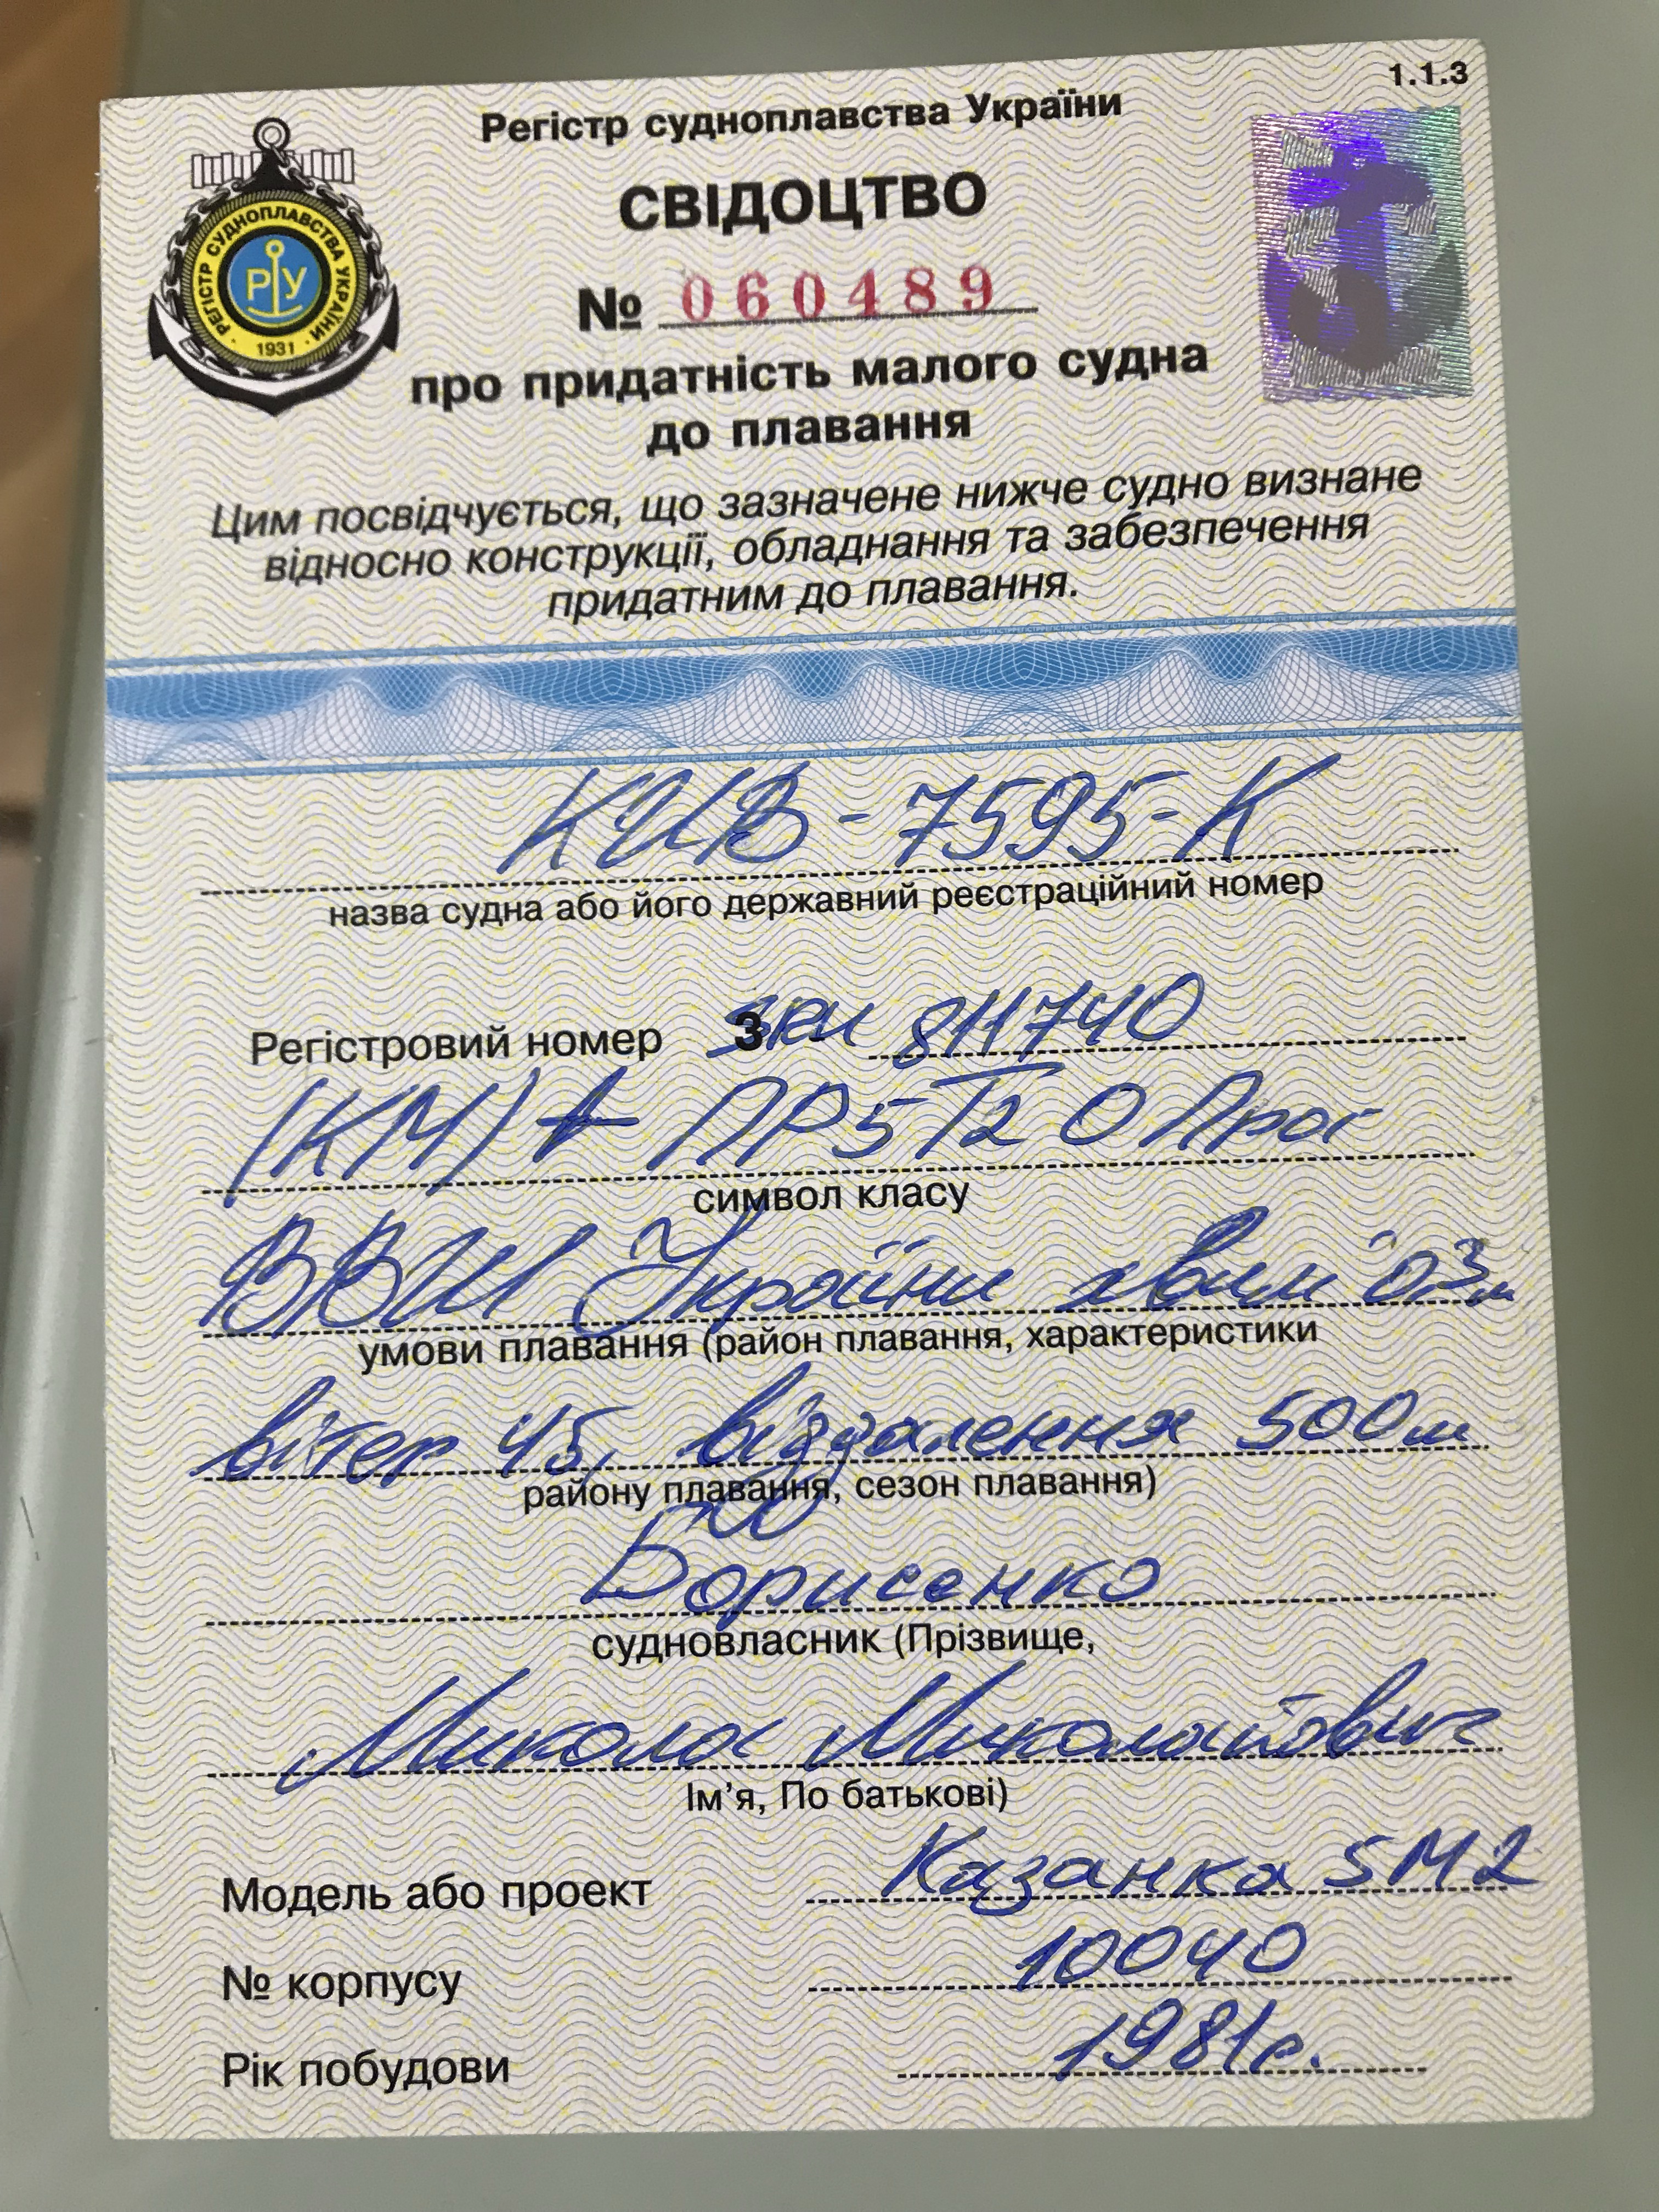 1.1.3
Регістр судноплавства України
РЕГІСТР СУДНОПЛАВСТВА УКРАЇНИ
РУ
1931
СВІДОЦТВО
№ 060489
про придатність малого судна
до плавання
Цим посвідчується, що зазначене нижче судно визнане
відносно конструкції, обладнання та забезпечення
придатним до плавання.
КИВ-7595-К
назва судна або його державний реєстраційний номер
Регістровий номер 3 811740
(КМ) ПР5 Т2 О Прог
символ класу
ВВШ України хвил 0,3м
умови плавання (район плавання, характеристики
вітер 4б, віддалення 500м
району плавання, сезон плавання)
Борисенко
судновласник (Прізвище,
Микола Миколайович
Ім'я, По батькові)
Модель або проект Казанка 5М2
№ корпусу 10040
Рік побудови 1981р.